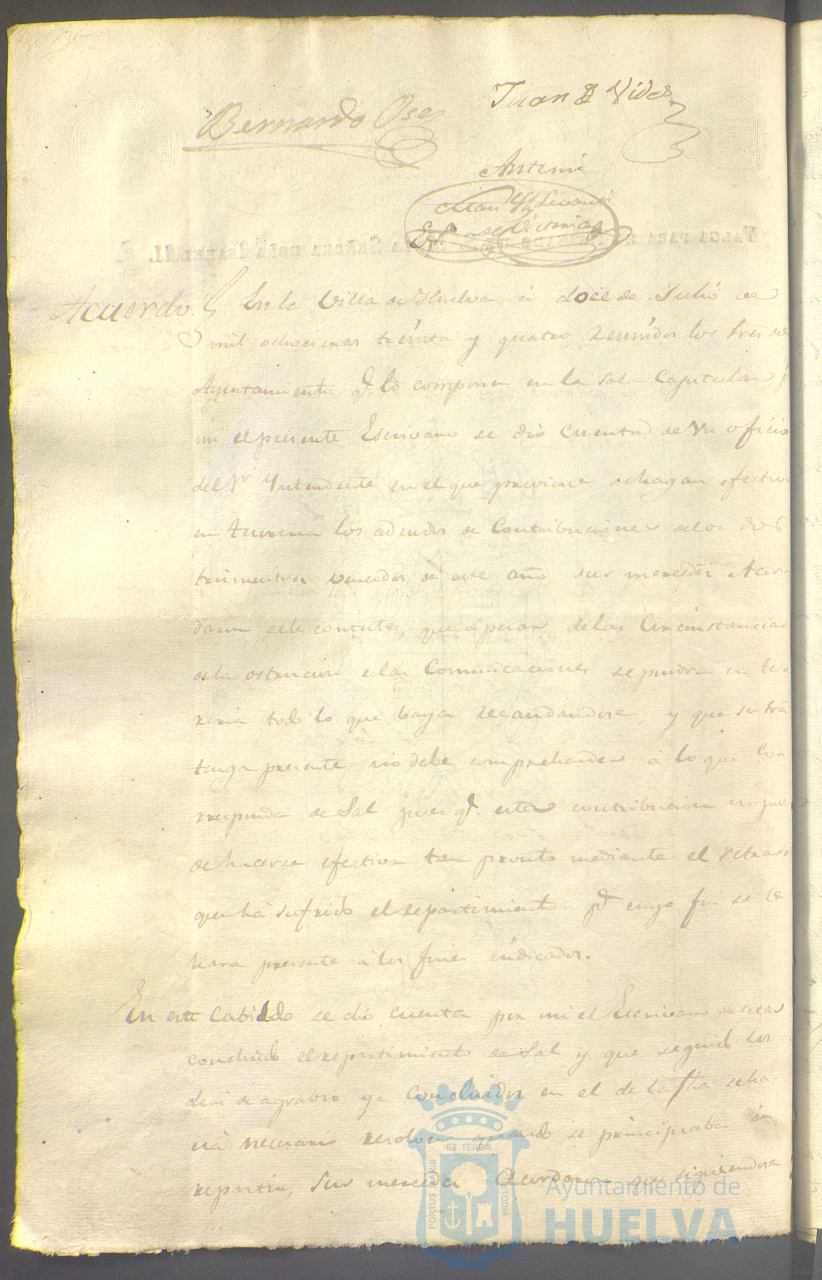 Bernardo Ose
Juan B Vides
Antemi
de Victoria
Acuerdo. En la Villa de Huelva á doce de Julio de
mil ochocientos treinta y quatro, reunidos los Sres de
Ayuntamiento q.e lo componen en la sala Capitular p.r
mi el presente Escrivano se dió cuenta de un oficio
del Sr Yntendente en el que previene se hagan efectivos
en los adeudos de Contribuciones de los dos
trimestres vencidos de este año sus mercedes Acor
daron se le conteste, que á pesar de las Circunstancias
de la de las Comunicaciones se pondra en teso
reria todo lo que baya recaudandose, y que su Sria
tenga presente no debe comprehender á lo que Co
rresponda de Sal pues q.e esta contribucion no puede
de hacerse efectiva tan pronto mediante el retraso
que há sufrido el repartimiento p.a cuyo fin se le
hara presente á los fines indicados.
En este Cabildo se dió cuenta por mi el Escrivano de estar
concluido el repartimiento de Sal y que seguido los
dias de agravio ya Concluidos en el de la fha se ha
cia necesario resolver quando se principiaba á
repartir, Sus mercedes Acordaron que siguiendose
PORTUS MARIS
ET TERRÆ
CUSTODIA
Ayuntamiento de
HUELVA